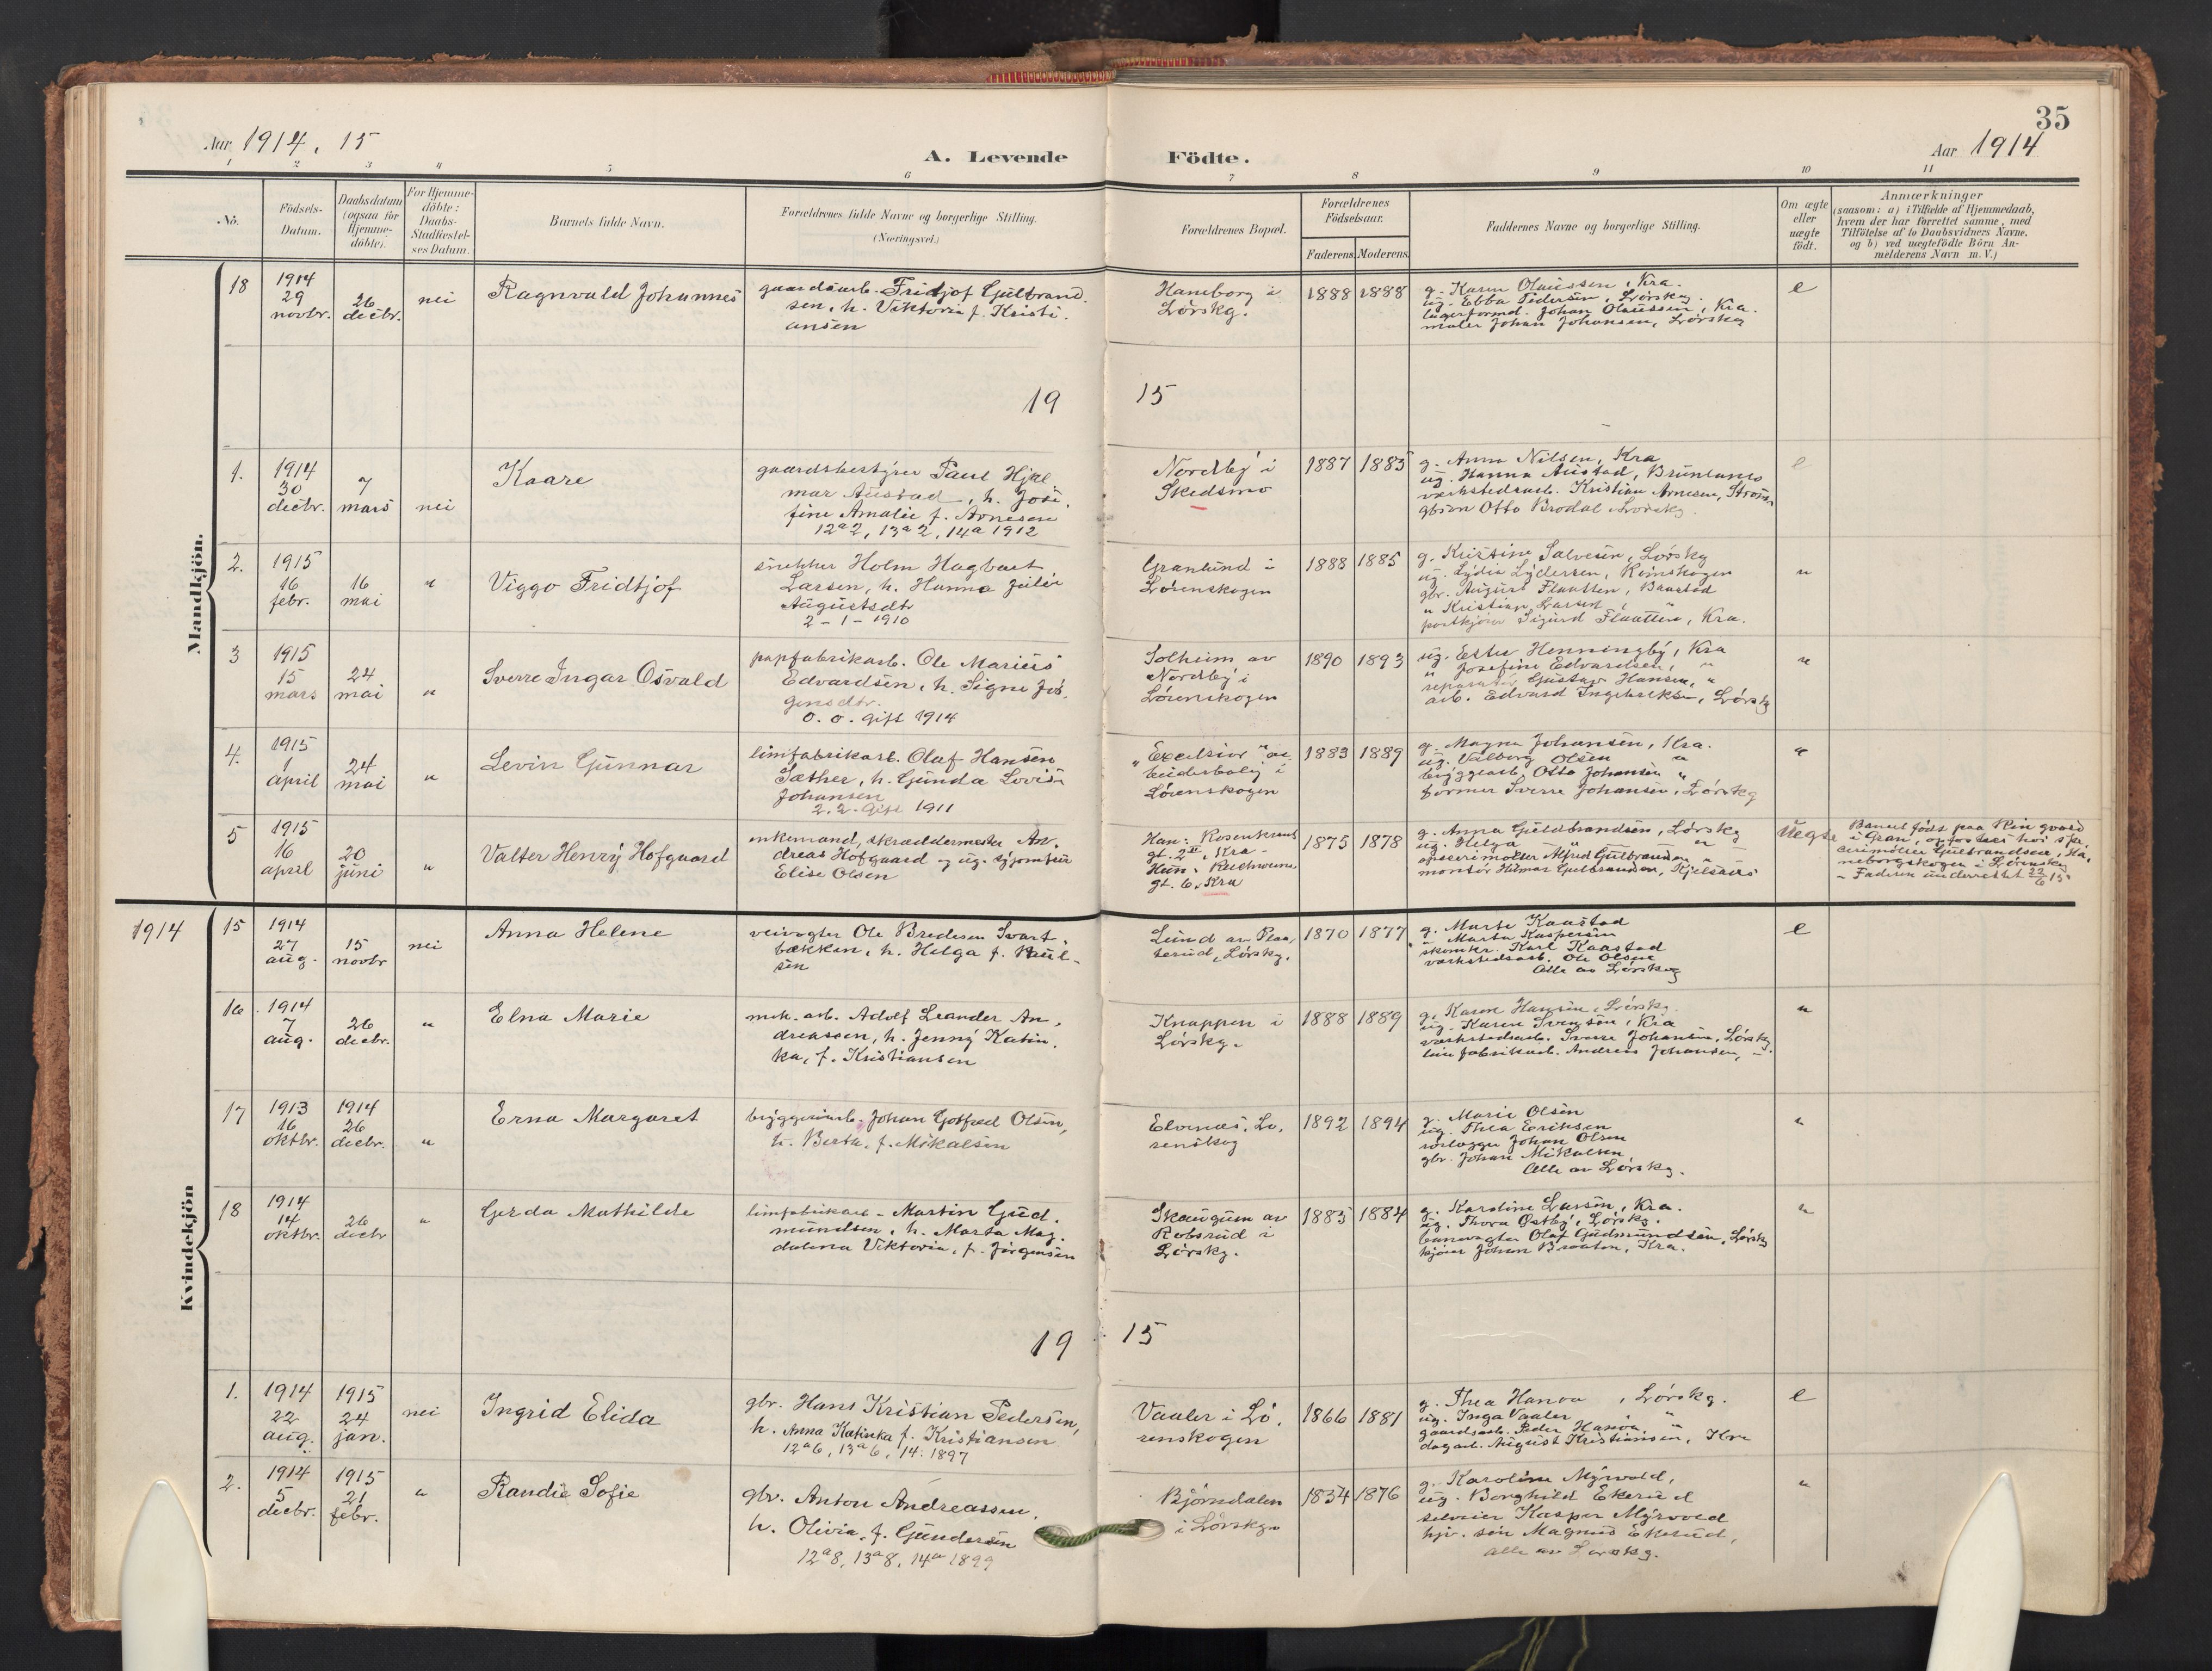 35
Aar 1914. 15
A. Levende
Födte.
Aar 1914
1 2 3 4 5 6 7 8 9 10 11
No.
Födsels-
Datum.
Daabsdatum
(ogsaa for
Hjemme-
döbte).
For Hjemme-
döbte:
Daabs-
Stadfæstel-
ses Datum.
Barnets fulde Navn.
Forældrenes fulde Navne og borgerlige Stilling.
(Næringsvei.)
Forældrenes Bopæl.
Forældrenes
Födselsaar.
Faderens.
Moderens.
Faddernes Navne og borgerlige Stilling.
Om ægte
eller
uægte
födt.
Anmærkninger
(saasom: a) i Tilfælde af Hjemmedaab,
hvem der har forrettet samme, med
Tilföielse af to Daabsvidners Navne.
og b) ved uægtefödte Börn An-
melderens Navn m. V.)
Mandkjön.
18
1914
29
novbr.
26
decbr.
nei
Ragnvald Johannes
gaardsarb. Fridtjof Gulbrand.
sen, h. Viktoria f. Kristi.
ansen
Haneborg i
Lørskg.
1888
1888
g. Karen Olaussen, Kra.
ug. Ebba Pedersen, Lørskg.
lagerformd. Johan Olaussen, Kra.
maler Johan Johansen, Lørskg
e
19
15
1.
1914
30
decbr.
7
mars
nei
Kaare
gaardsbestyrer Paul Hjal
mar Austad, h. Jose.
fine Amalie f. Arnesen
12a 2, 13a 2, 14a 1912
Nordby i
Skedsmo
1887
1885
g. Anna Nilsen, Kra
ug. Hanna Austad, Brunlanes
værkstedsarb. Kristian Arnesen, Strøm
Otto Brodal Lørskg.
e
2.
1915
16
febr.
16
mai
"
Viggo Fridtjof
snekker Holm Hagbart
Larsen, h. Hanna Julie
Augustsdtr
2 - 1 - 1910
Granlund i
Lørenskogen
1888
1885
g. Kristine Salvesen, Lørskg
ug. Lydia Lydersen, Rømskogen
gbr. August Flaatten, Baastad
" Kristian Larsen, "
postkjører Sigurd Flaatten, Kra.
"
3
1915
15
mars
24
mai
"
Sverre Ingar Osvald
papfabrikarb. Ole Marius
Edvardsen, h. Signe Jør.
gensdtr.
0. 0. gift 1914
Solheim av
Nordby i
Lørenskogen
1890
1893
ug. Ester Henningby, Kra
" Josefine Edvardsen, "
reparatør Gustav Hansen, "
arb. Edvard Ingebrektsen, Lørskg
"
4.
1915
1
april
24
mai
"
Levin Gunnar
limfabrikarb. Olaf Hansen
Sæther, h. Gunda Lovise
Johansen
2. 2. Gift 1911
"Excelsior" ar
beiderbolig i
Lørenskogen
1883
1889
g. Magna Johansen, Kra.
ug. Valborg Olsen "
bryggearb. Otto Johansen "
former Sverre Johansen, Lørskg
"
5
1915
16
april
20
juni
"
Valter Henry Hofgaard
enkemand, skræddermester An.
dreas Hofgaard og ug. syjomfru
Elise Olsen
Han: Rosenkrantz
gt. 2 II, Kra -
Hun:
gt. 6, Kra
1875
1878
g. Anna Guldbrandsen, Lørskg
ug. Helga " "
Alfred Gulbrandsen "
montør Hilmar Gulbrandsen, Kjelsaas
uegte
Barnet født paa
i Gran, opfostres hos
Gulbrandsen, Ha.
neborgskogen i Lørenskog
- Faderen underrettet 22/6 15.
Kvindekjön
1914
15
1914
27
aug.
15
novbr
nei
Anna Helene
veivogter Ole Bredesen Svart.
bækken, h. Helga f. Paul-
sen
Lund av Plaa,
terud, Lørskg.
1870
1877
g. Marte Kaastad
" Marta Kaspersen
skomkr. Karl Kaastad
værkstedsarb. Ole Olsen
Alle av Lørskg
e
16.
1914
7
aug.
26
decbr.
"
Elna Marie
mek. arb. Adolf Leander An.
dreassen, h. Jenny Katin.
ka, f. Kristiansen
Knappen i
Lørskg.
1888
1889
g. Karen Hansen, Lørskg
ug. Karen Svensen, Kra
værkstedsarb. Sverre Johansen, Lørskg.
limfabrikarb. Andreas Johansen, "
"
17
1913
16
oktbr.
1914
26
decbr.
"
Erna Margaret
bryggeriarb. Johan Gotfred Olsen,
h. Berta, f. Mikalsen
Elvenes, Lø.
renskog
1892
1894
g. Marie Olsen
ug. Thea Eriksen
rørlægger Johan Olsen
gbr. Johan Mikalsen,
Alle av Lørskg.
"
18
1914
14
oktbr.
26
decbr
"
Gerda Mathilde
limfabrikarb - Martin Gud.
mundsen, h. Marta Mag.
dalena Viktoria, f. Jørgensen
Skaugum av
Robsrud i
Lørskg.
1885
1884
g. Karoline Larsen, Kra.
ug. Thora Østby, Lørskg.
banevogter Olaf Gudmundsen, Lørskg
kjører Johan Braaten, Kra.
"
19
15
1.
1914
22
aug.
1915
24
jan.
nei
Ingrid Elida
gbr. Hans Kristian Pedersen,
h. Anna Katinka f. Kristiansen
12a 6, 13a 6, 14: 1897
Vaaler i Lø.
renskogen
1866
1881
g. Thea Hanoa, Lørskg.
ug. Inga Vaaler "
gaardsarb. Peder Hanoa, "
dagarb. August Kristiansen, Kra
e
2.
1914
5
decbr.
1915
21
febr.
"
Randie Sofie
gbr. Anton Andreassen,
h. Olivia, f. Gundersen
12a 8, 13a 8, 14a 1899
Bjørndalen
i Lørskg.
1834
1876
g. Karoline Myrvold,
ug. Borghild Ekerud
seleier Kasper Myrvold
hjv. søn Magnus Ekerud,
alle av Lørskg.
"